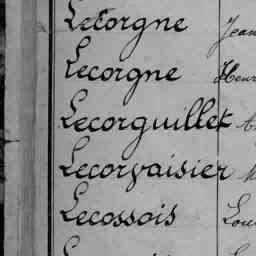 Lecorgne Jean
Lecorgne Henr
Lecorguillet
Lecorvaisier M
Lecossois Loui